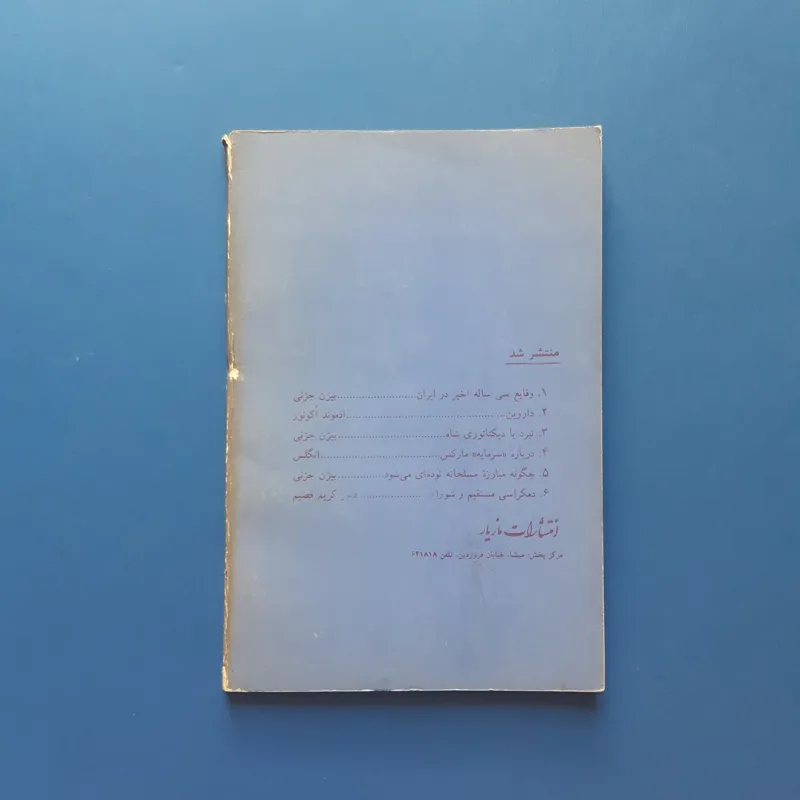 منتشر شد
۱. وقایع سی ساله اخیر در ایران........................بیژن جزنی
۲. داروین..................................................ادموند اکونور
۳. نبرد با دیکتاتوری شاه..................................بیژن جزنی
۴. دربارهٔ «سرمایه» مارکس....................................انگلس
۵. چگونه مبارزهٔ مسلحانه توده‌ای می‌شود...............بیژن جزنی
۶. دمکراسی مستقیم و شوراها .................... کریم قصیم
انتشارات مازیار
مرکز پخش: میشا، خیابان فروردین، تلفن ۶۴۱۸۱۸